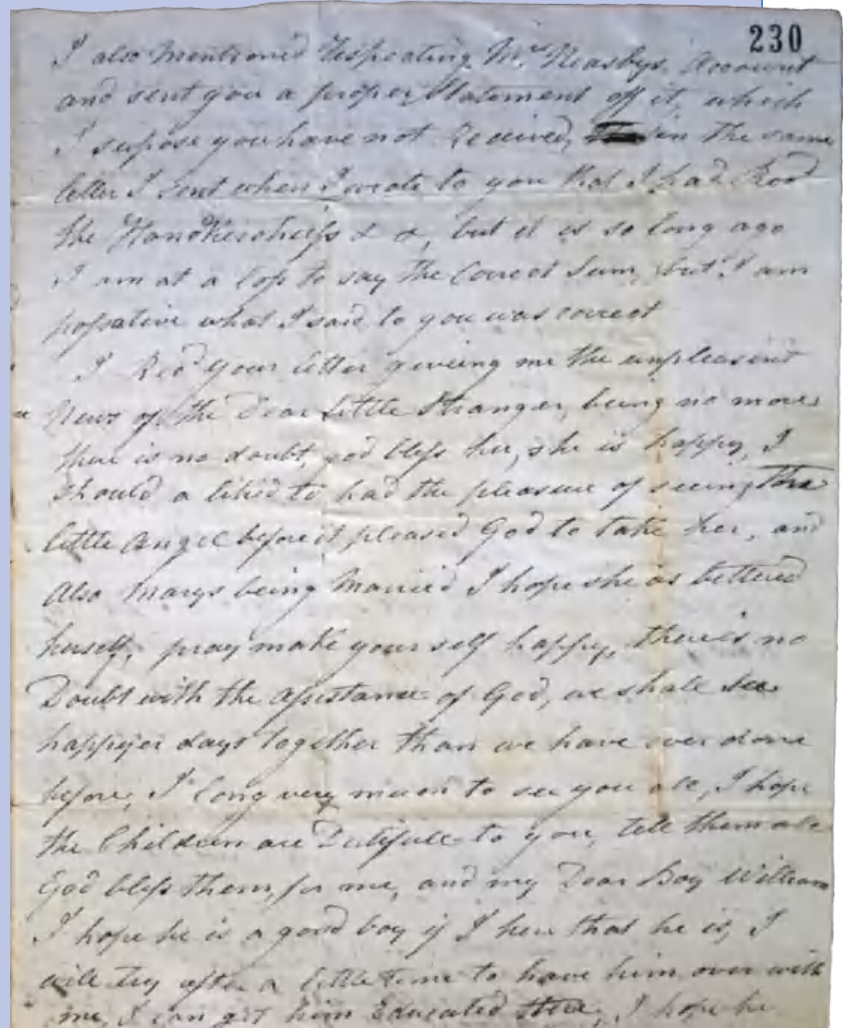 230
I also mentioned Respecting Mrs Neasbys Account
and sent you a proper Statement off it, which
I supose you have not Received, in the same
letter I sent when I wrote to you that I had Recd
the Handkercheifs & &, but it is so long ago
I am at a loss to say the Correct Sum, but I am
possative what I said to you was correct
I Recd your letter giveing me the unpleasent
News of the Dear Little Stranger, being no more
there is no doubt, god bless her, she is happy, I
should a liked to had the pleasure of seeing the
little Angel before it pleased God to take her, and
Also Marys being Married I hope she as bettered
herself, pray make yourself happy, there is no
Doubt with the assistance of God, we shall see
happyer days together than we have ever done
before, I long very much to see you all, I hope
the Children are Dutifull to you, tell them all
God bless them, for me, and my Dear Boy William
I hope he is a good boy if I hear that he is, I
will try after a little time to have him over with
me, I can get him Educated there, I hope he